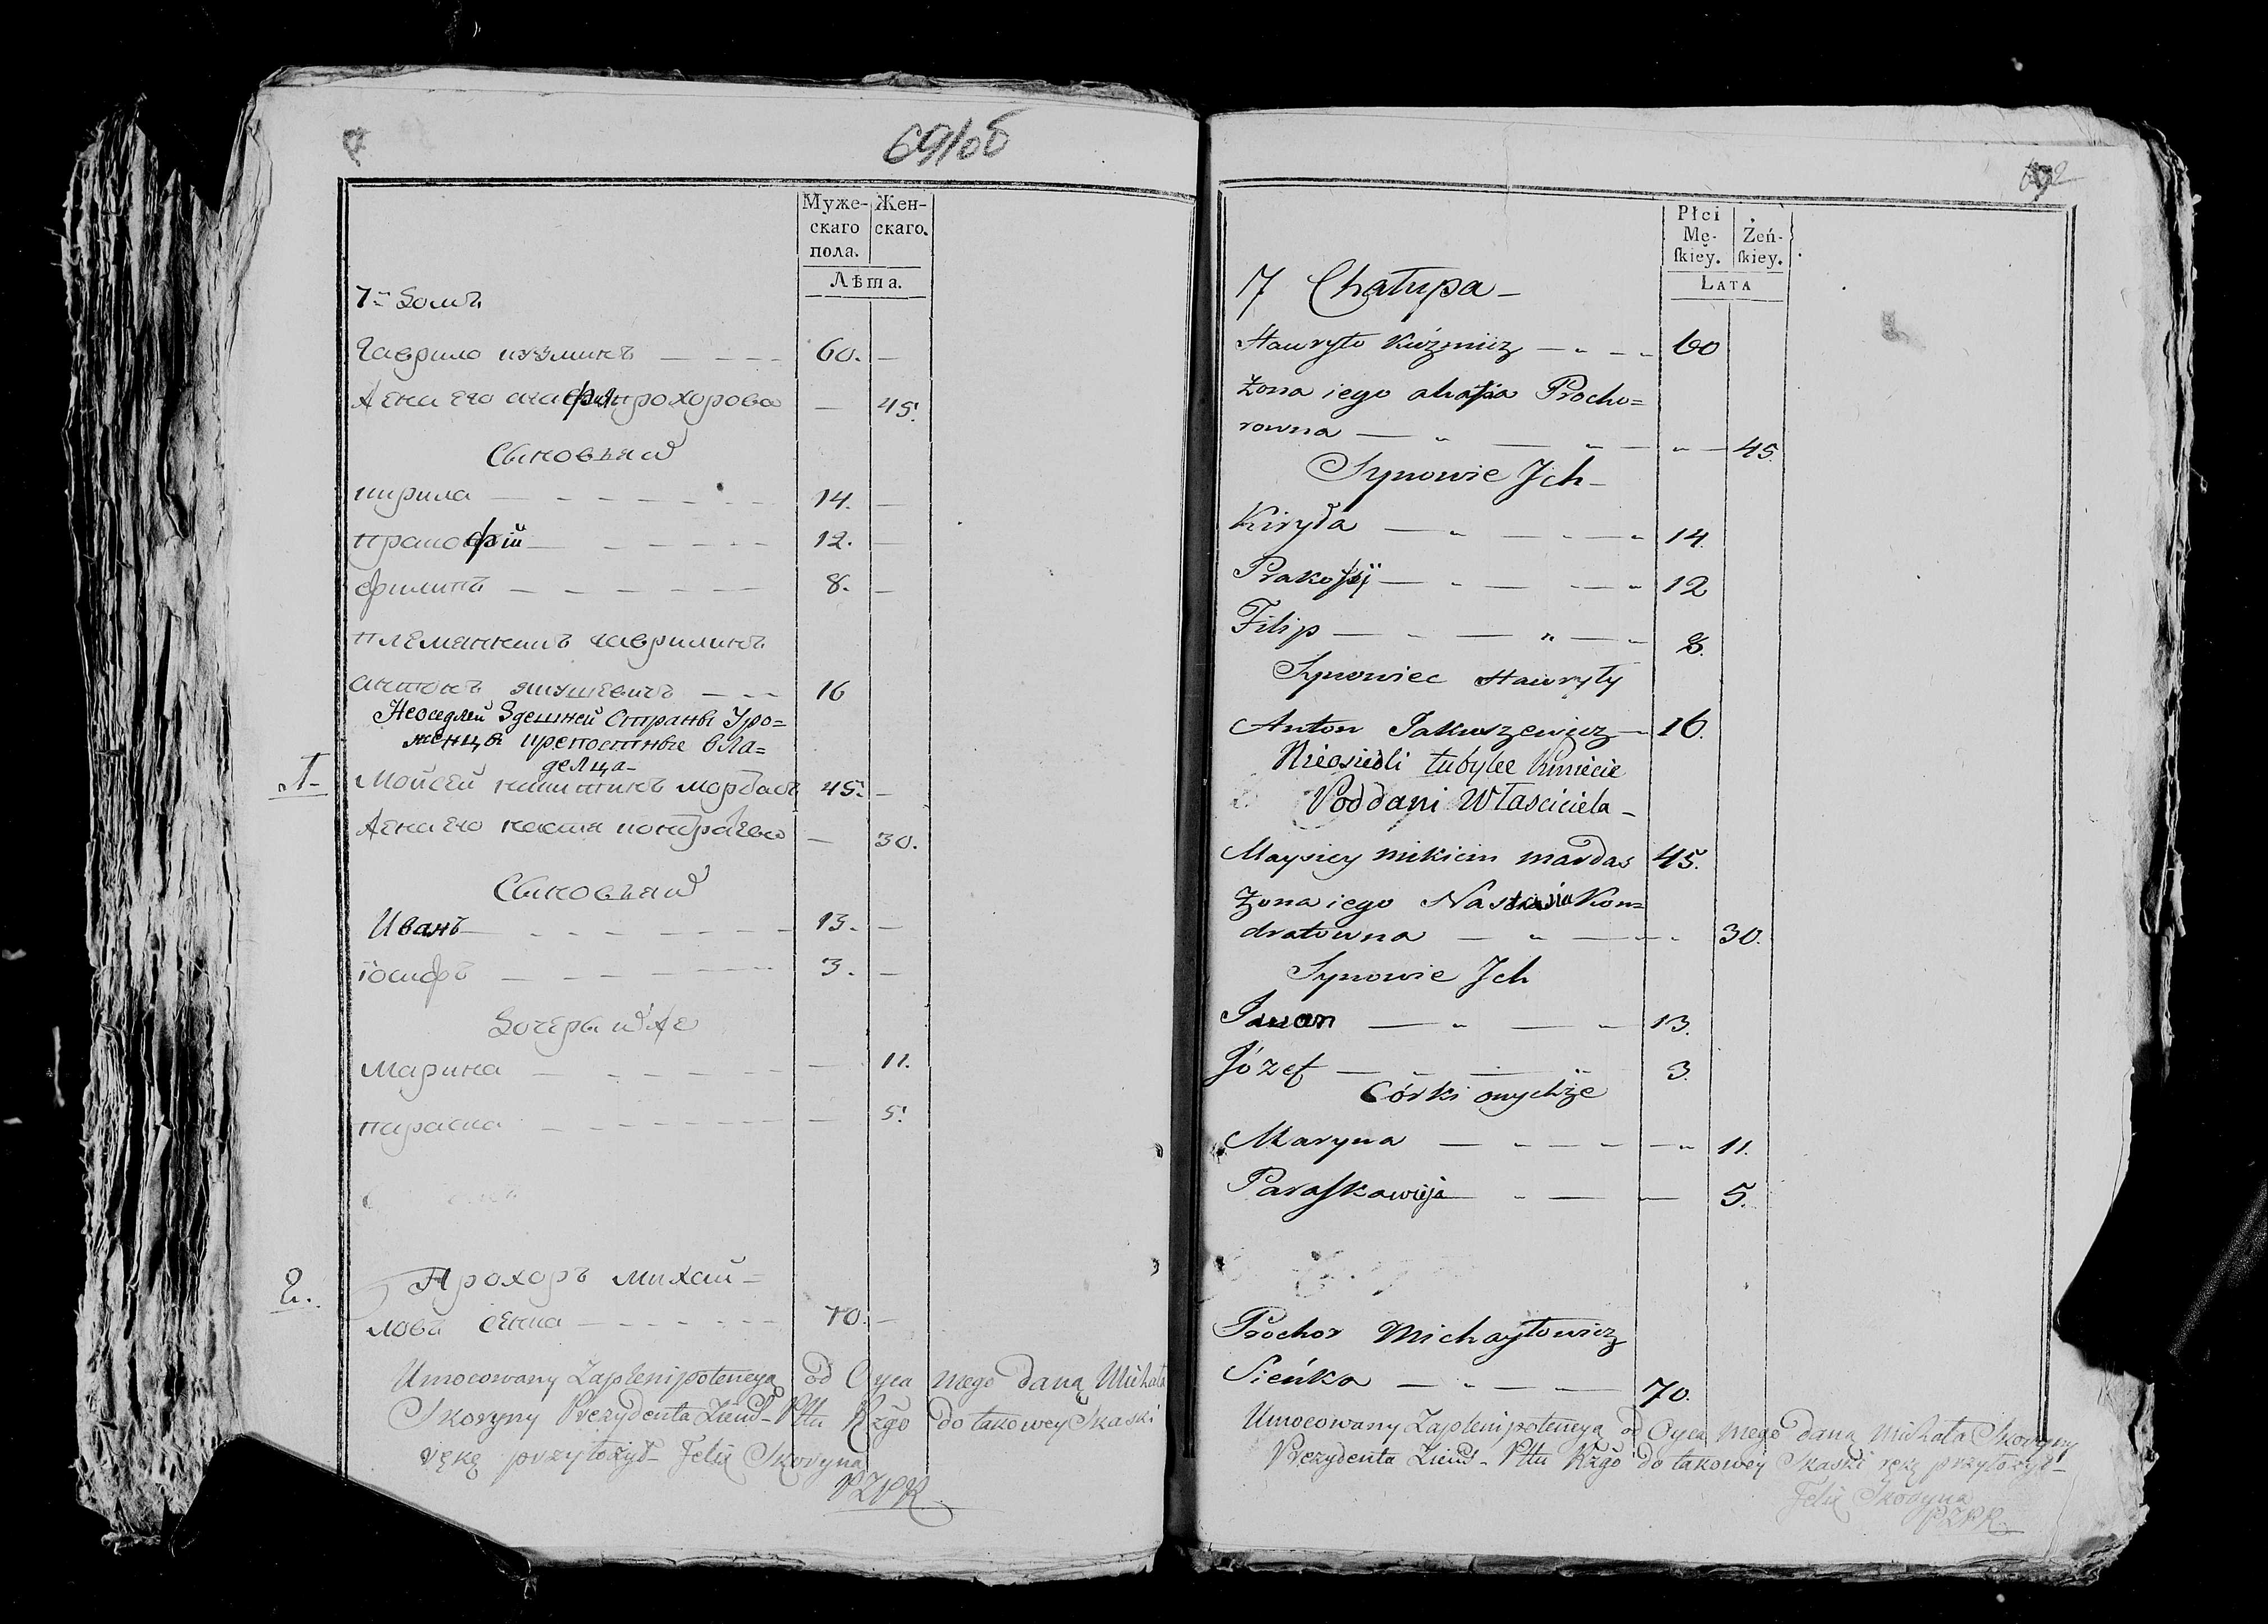 691об
Муже-
скаго
пола.
Жен-
скаго.
Лѣта.
7й домъ
Гаврило кузминъ 60. —
Жена его агафия прохорова — 45.
Сыновья ихъ
кирила 14. —
пракофій 12. —
филипъ 8. —
племянникъ гаврилинъ
антонъ якушевичъ 16
Неоседлей Здешней Страны Уро=
женцы крепостные вла=
делца
1 Мойсей никитинъ мордасъ 45. —
Жена его настя кондратева — 30.
Сыновья ихъ
Иванъ 13. —
іосифъ 3. —
Дочери ихъ же
Марина — 11.
параска — 5.
2. Прохоръ михай=
ловъ сенка 70. —
Umocowany Zaplenipotencyą od Oyca mego daną Michała
Skoryny Prezydenta Ziems. Pttu Rzgo do takowey Skaski
rękę przyłożył Felix Skoryna
PZPR
692
Płci
Mę-
ſkiey.
Żeń-
ſkiey.
LATA
7 Chałupa
Hawryło Kuźmicz 60
żona iego ahafia Procho=
rowna 45.
Synowie Ich
Kiryła 14.
Prakofij 12
Filip 8.
Synowiec Hawryły
Anton Jakuszewicz 16.
Nieosiedli tubylce kmiecie
Poddani Własciciela
Maysiey mikicin mardas 45.
żona iego Nastasia Kon=
dratowna 30.
Synowie Ich
Iwan 13.
Józef 3.
Córki onychże
Maryna 11.
Paraſkawija 5.
Prochor Michayłowicz
Sieńka 70.
Umocowany Zaplenipotencyą od Oyca mego daną Michała Skoryny
Prezydenta Ziems. Pttu Rzgo do takowey Skaski rękę przyłożył
Felix Skoryna
PZPR